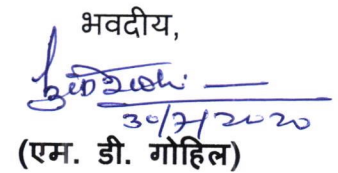 भवदीय,
30/7/2020
(एम. डी. गोहिल)